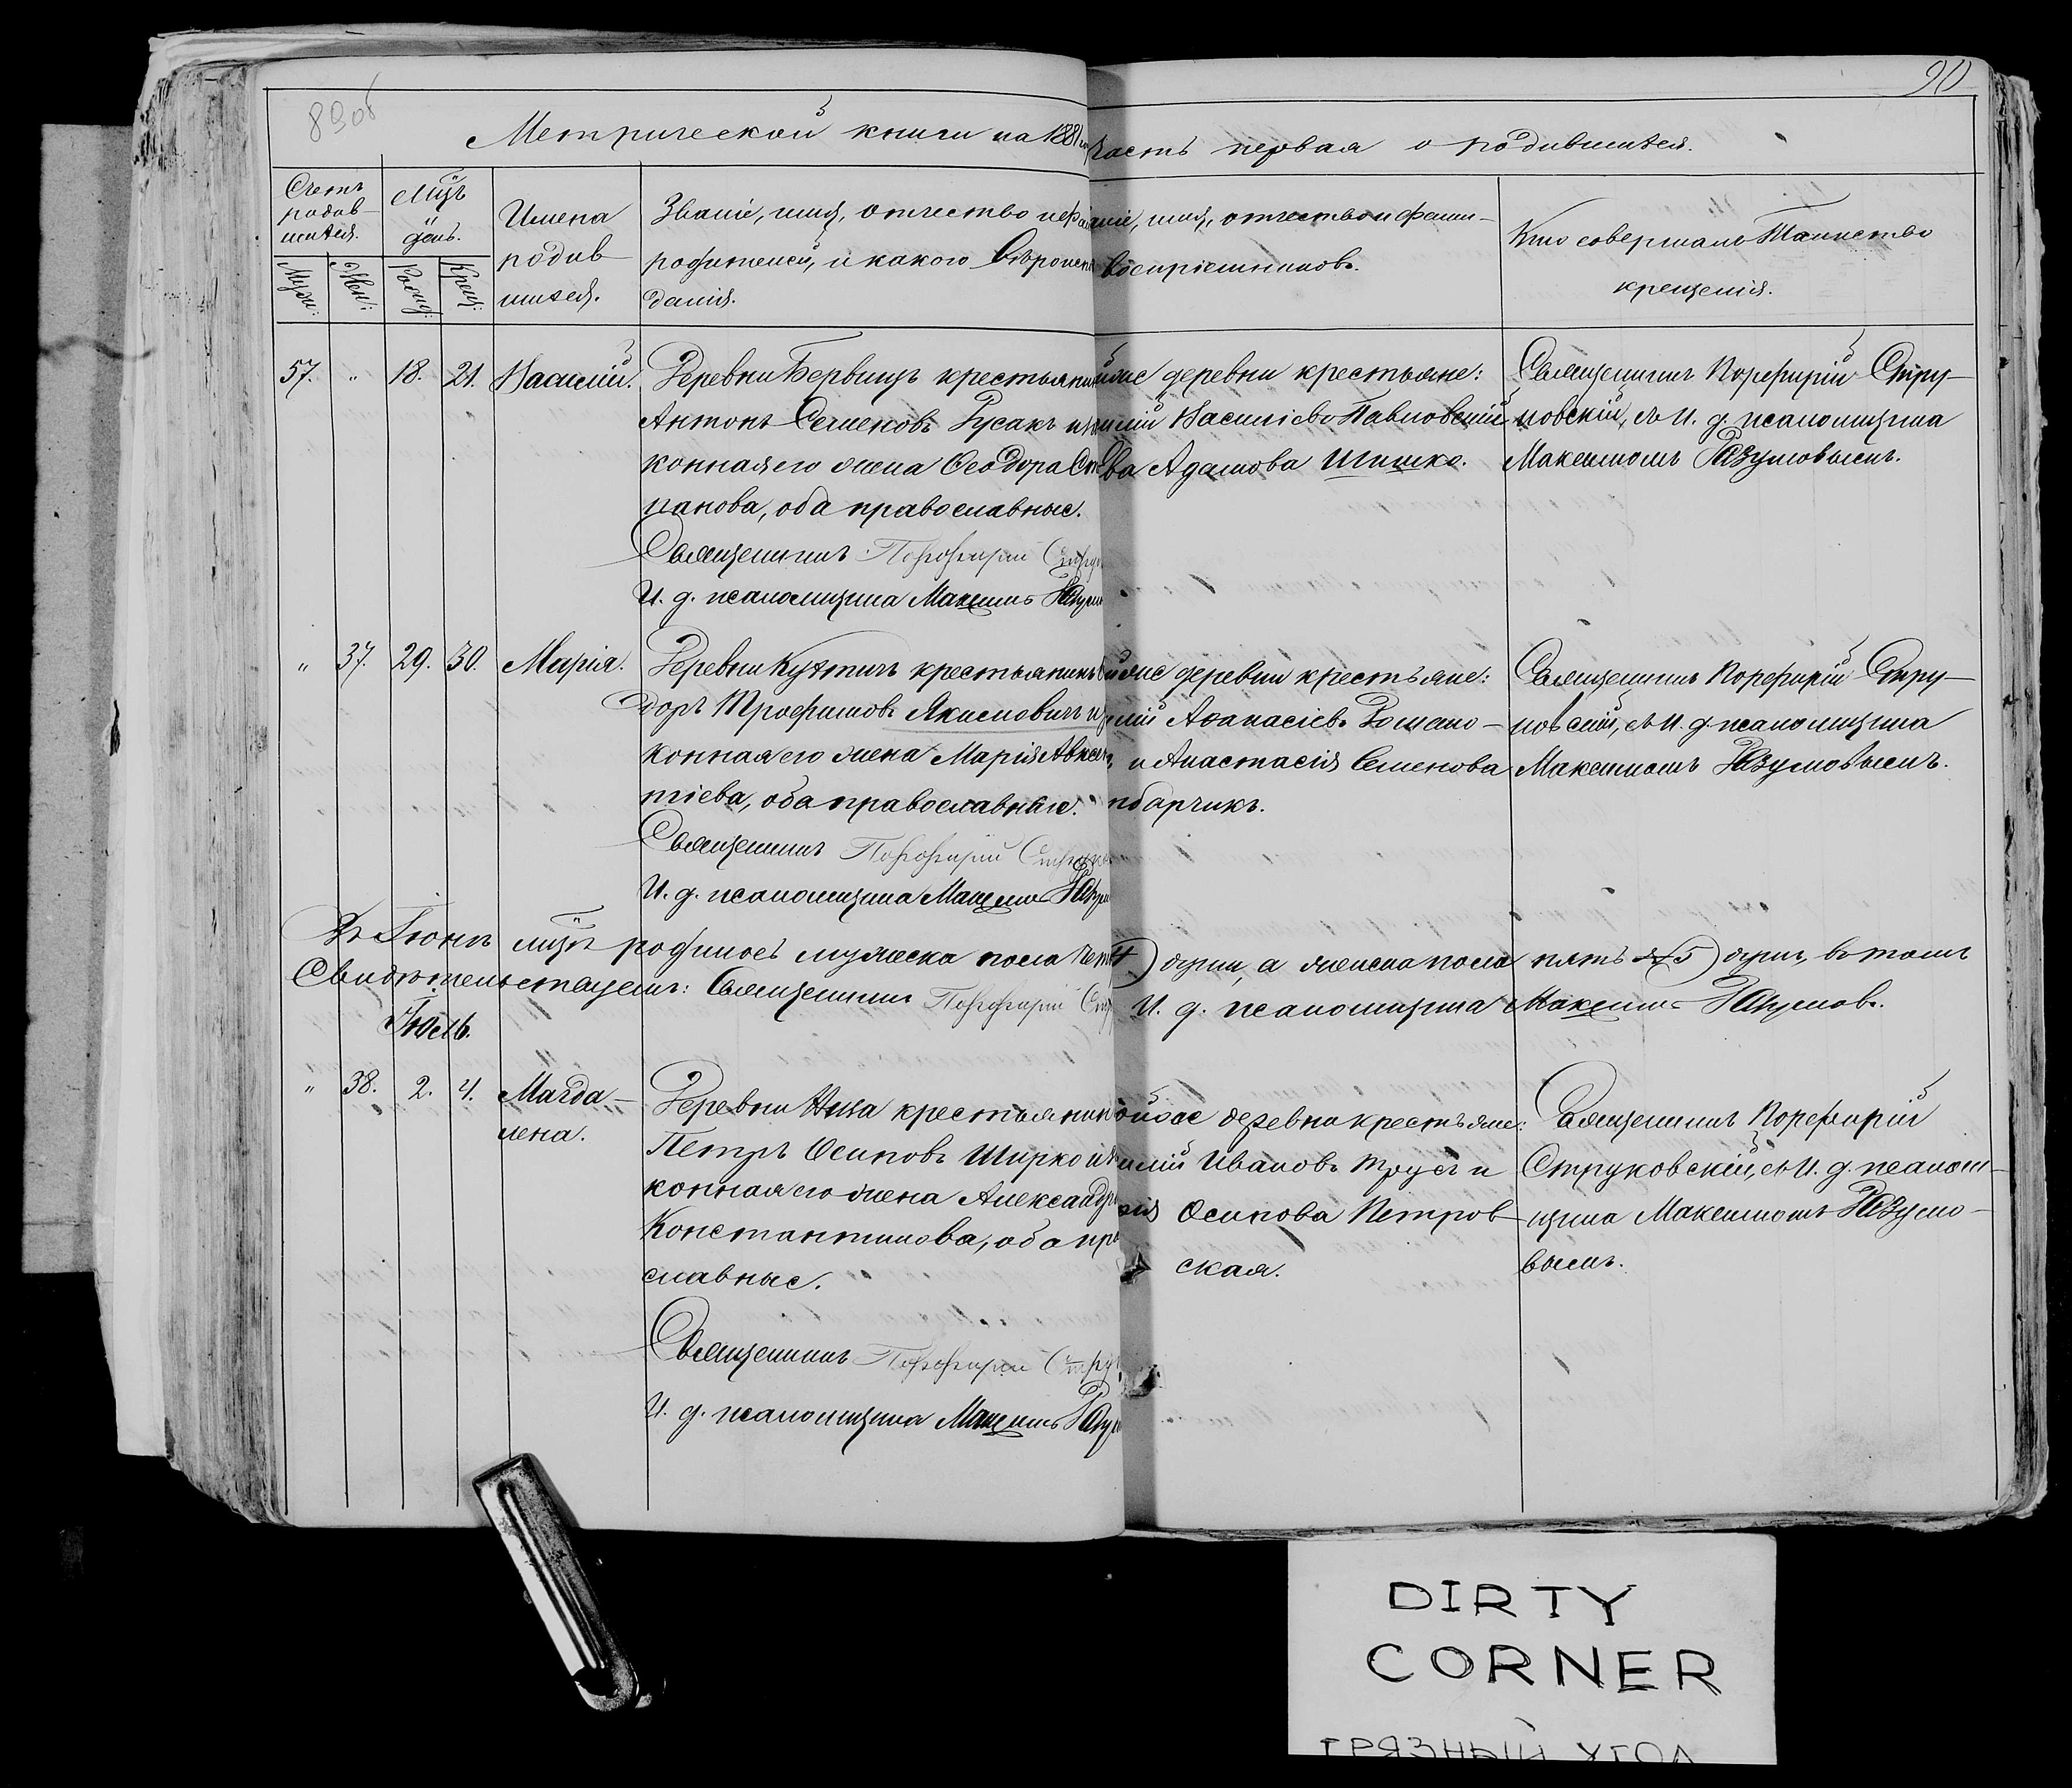 89об
90
Метрической книги на 1881 го
часть первая о родившихся.
Счетъ родив-
шихся.
Муж:
Жен:
Мцъ
и
день.
Рожд:
Крещ:
Имена
родив-
шихся.
Званіе, имя, отчество и фа
родителей, и какого вѣроиспо
данія.
аніе, имя, отчество и фами-
воспріемниковъ.
Кто совершалъ Таинство
крещенія.
57. " 18. 21. Василій.
Деревни Бервищъ крестьянинъ
Антонъ Семеновъ Русакъ и за
конная его жена Ѳеодора Сте
панова, оба православные.
Священникъ Порфирій Стру
И. д. псаломщика Максимъ Разум
деревни крестьяне:
Василіевъ Павловскій
ва Адамова Шишко.
Священникъ Порфирій Стру-
ковскій, съ И. д. псаломщика
Максимомъ Разумовымъ.
" 37. 29. 30. Марія.
Деревни Кухтичъ крестьянинъ
доръ Трофимовъ Якимовичъ и за
конная его жена Марія Авксен
тіева, оба православные.
Священникъ Порфирій Струко
И. д. псаломщика Максимъ Разум
деревни крестьяне:
Аѳанасіевъ Романо-
и Анастасія Семенова
барчикъ.
Священникъ Порфирій Стру-
ковскій, съ И. д. псаломщика
Максимомъ Разумовымъ.
Въ Іюнѣ мцѣ родилось мужеска пола
4) души, а женска пола пять (5) душъ, въ томъ
Свидѣтельствуемъ: Священникъ Порфирій Стр
И. д. псаломщика Максимъ Разумовъ.
Іюль.
" 38. 2. 4. Магда-
лена.
Деревни крестьянин
Петръ Осиповъ Ширко и за
конная его жена Александра
Константинова, оба пра
славные.
Священникъ Порфирій Стру
И. д. псаломщика Максимъ Разум
деревни крестьяне:
Ивановъ Трусъ и
Осипова Петров-
ская.
Священникъ Порфирій
Струковскій, съ И. д. псалом-
щика Максимомъ Разумо-
вымъ.
DIRTY
CORNER
ГРЯЗНЫЙ УГОЛ